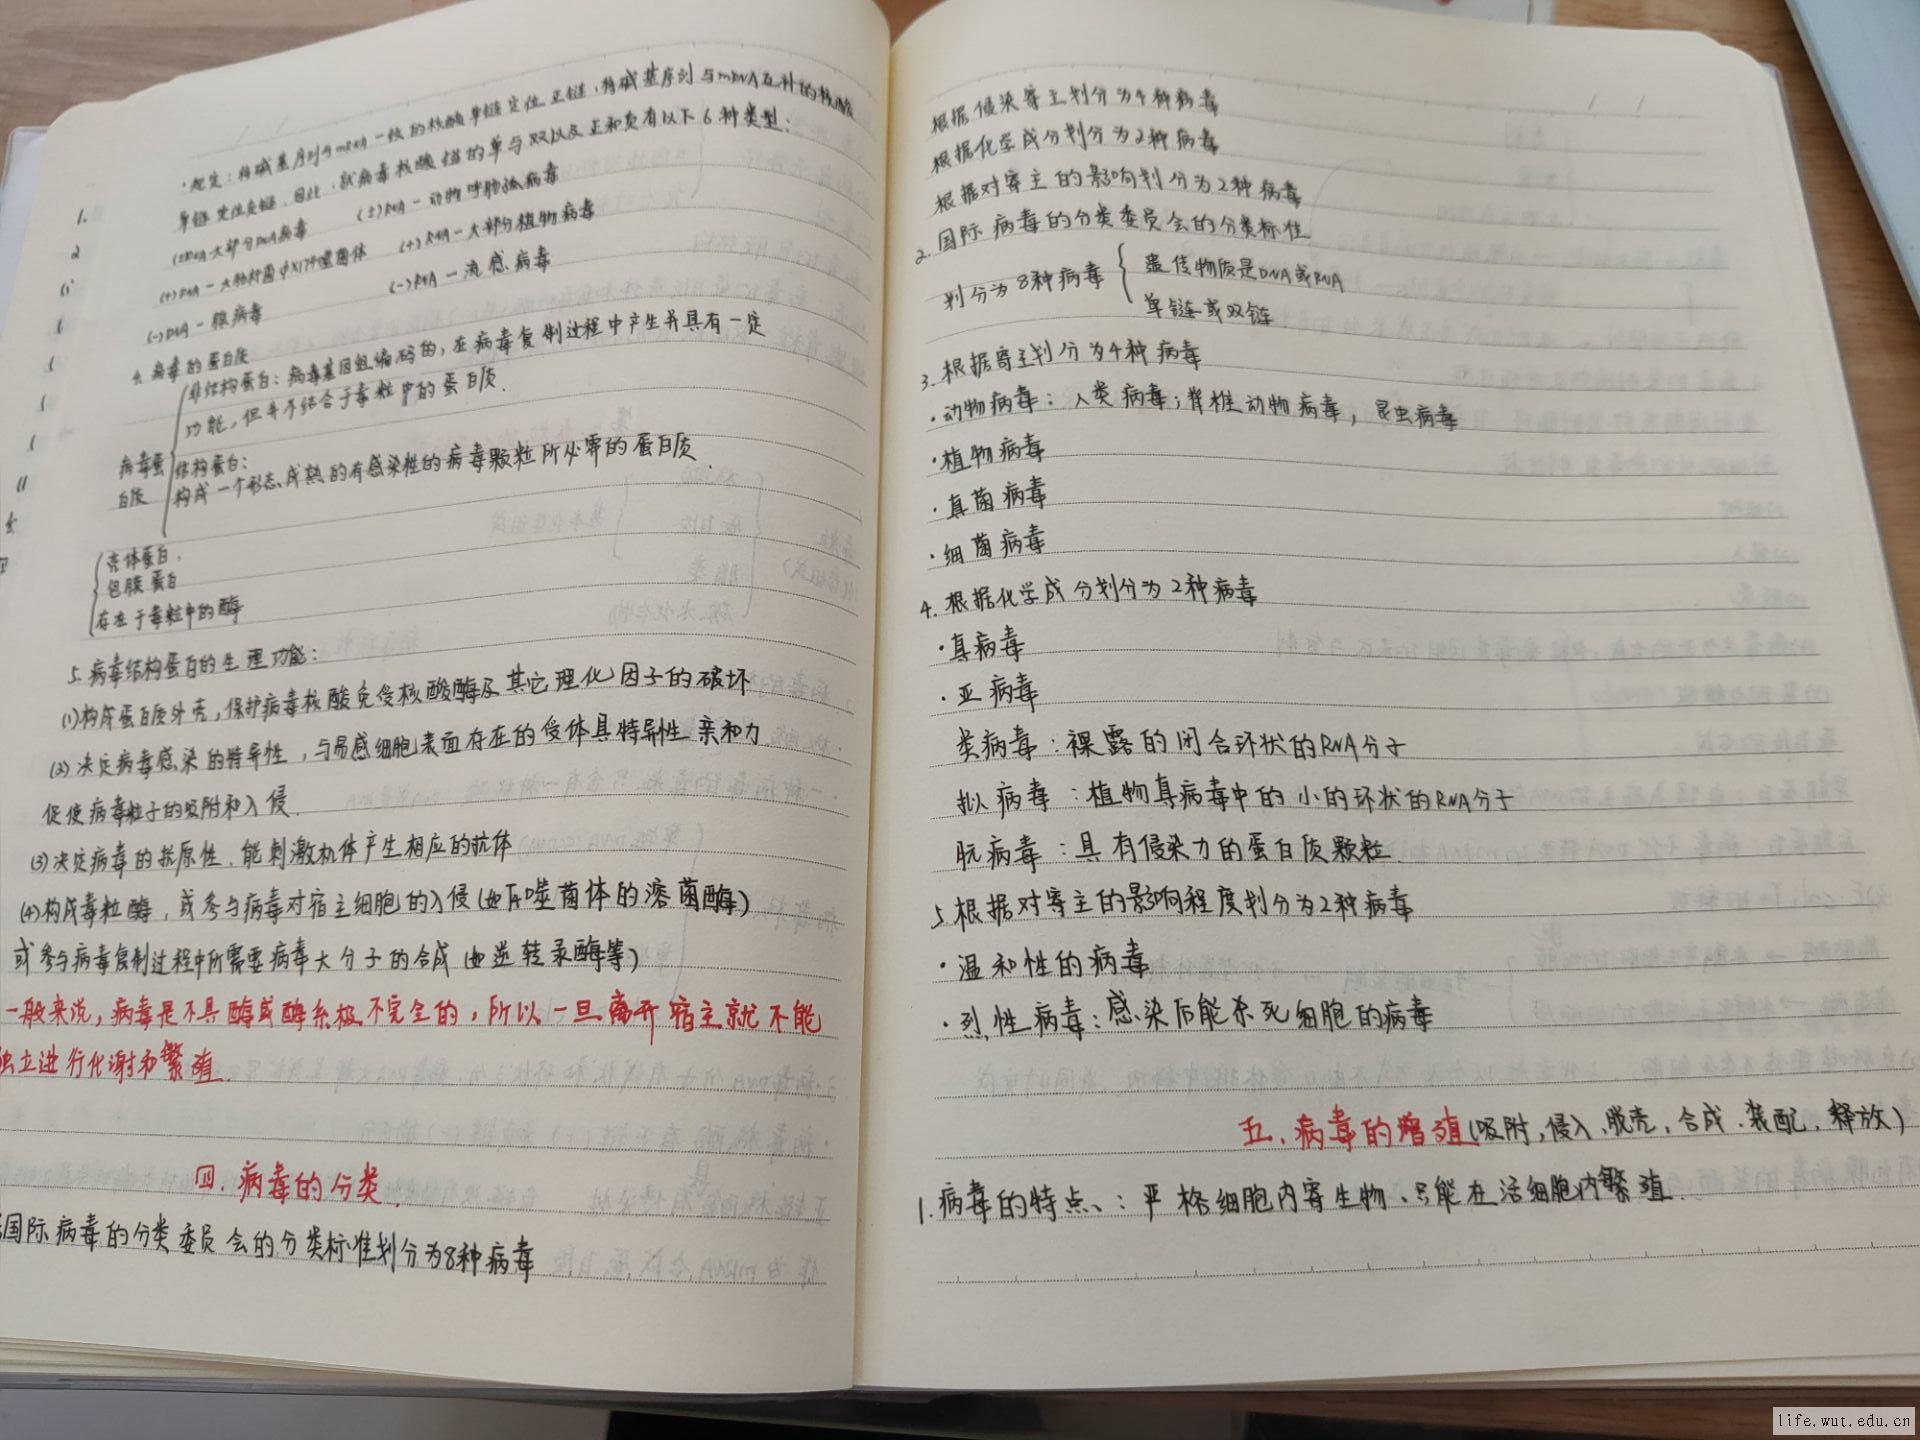 ·规定:将碱基序列与mRNA一致的核酸单链定位正链,将碱基序列与mRNA互补的核酸
单链定位负链.因此,就病毒核酸链的单与双以及正和负有以下6种类型:
(±)DNA-大部分DNA病毒 (±)RNA-动物呼肠孤病毒
(+)DNA-大肠杆菌ΦX174噬菌体 (+)RNA-大部分植物病毒
(-)DNA-腺病毒 (-)RNA-流感病毒
4.病毒的蛋白质
病毒蛋白质
非结构蛋白:病毒基因组编码的,在病毒复制过程中产生并具有一定
功能,但并不结合于毒粒中的蛋白质.
结构蛋白:
构成一个形态成熟的有感染性的病毒颗粒所必需的蛋白质.
壳体蛋白.
包膜蛋白
存在于毒粒中的酶
5.病毒结构蛋白的生理功能:
(1)构成蛋白质外壳,保护病毒核酸免受核酸酶及其它理化因子的破坏
(2)决定病毒感染的特异性,与易感细胞表面存在的受体具特异性亲和力
促使病毒粒子的吸附和入侵.
(3)决定病毒的抗原性.能刺激机体产生相应的抗体
(4)构成毒粒酶,或参与病毒对宿主细胞的入侵(如T4噬菌体的溶菌酶)
或参与病毒复制过程中所需要病毒大分子的合成(如逆转录酶等)
一般来说,病毒是不具酶或酶系极不完全的,所以一旦离开宿主就不能
独立进行代谢和繁殖.
四.病毒的分类.
国际病毒的分类委员会的分类标准划分为8种病毒
根据侵染寄主划分为4种病毒
根据化学成分划分为2种病毒
根据对寄主的影响划分为2种病毒
2.国际病毒的分类委员会的分类标准
划分为8种病毒
遗传物质是DNA或RNA
单链或双链
3.根据寄主划分为4种病毒
·动物病毒:人类病毒;脊椎动物病毒,昆虫病毒
·植物病毒
·真菌病毒
·细菌病毒
4.根据化学成分划分为2种病毒
·真病毒
·亚病毒
类病毒:裸露的闭合环状的RNA分子
拟病毒:植物真病毒中的小的环状的RNA分子
朊病毒:具有侵染力的蛋白质颗粒
5.根据对寄主的影响程度划分为2种病毒
·温和性的病毒
·烈性病毒:感染后能杀死细胞的病毒
五.病毒的增殖(吸附,侵入.脱壳,合成.装配.释放)
1.病毒的特点:严格细胞内寄生物.只能在活细胞内繁殖.
life.wut.edu.cn